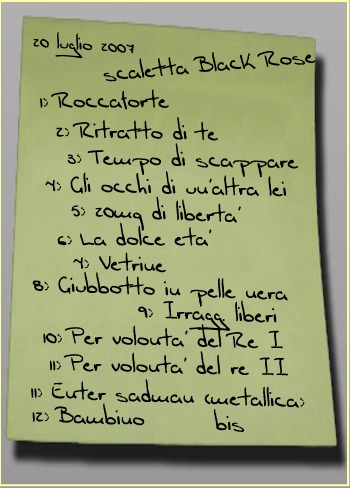 20 luglio 2007
scaletta Black Rose
1) Roccaforte
2) Ritratto di te
3) Tempo di scappare
4) Gli occhi di un'altra lei
5) 20mg di liberta'
6) La dolce eta'
7) Vetrine
8) Giubbotto in pelle nera
9) Irragg liberi
10) Per volonta' del Re I
11) Per volonta' del re II
11) Enter sadman (metallica)
12) Bambino bis